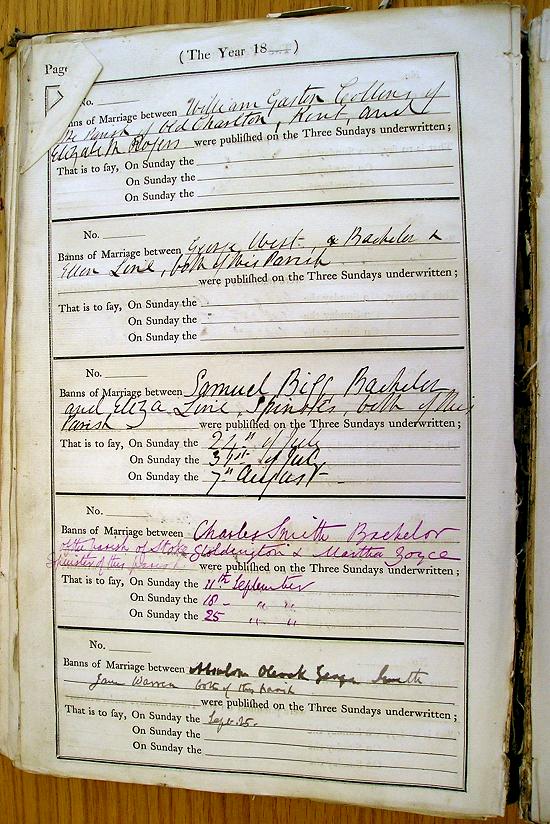 Page
(The Year 18
No.
Banns of Marriage between William Gaston Collins of
the Parish of Old Charlton, Kent, and
Elizabeth Rogers were publiſhed on the Three Sundays underwritten;
That is to ſay, On Sunday the
On Sunday the
On Sunday the
No.
Banns of Marriage between George West, a Bachelor &
Ellen Line, both of this Parish
were publiſhed on the Three Sundays underwritten;
That is to ſay, On Sunday the
On Sunday the
On Sunday the
No.
Banns of Marriage between Samuel Bigg Bachelor
and Eliza Line, Spinster, both of this
Parish were publiſhed on the Three Sundays underwritten;
That is to ſay, On Sunday the 24" of July
On Sunday the 31st of July
On Sunday the 7" August
No.
Banns of Marriage between Charles Smith Bachelor
of the Parish of Stoke Goldington & Martha Joyce
Spinster of this Parish were publiſhed on the Three Sundays underwritten;
That is to ſay, On Sunday the 11th September
On Sunday the 18 - " "
On Sunday the 25 " "
No.
Banns of Marriage between George Smith
Jane Warren both of this parish
were publiſhed on the Three Sundays underwritten;
That is to ſay, On Sunday the Sept. 25.
On Sunday the
On Sunday the